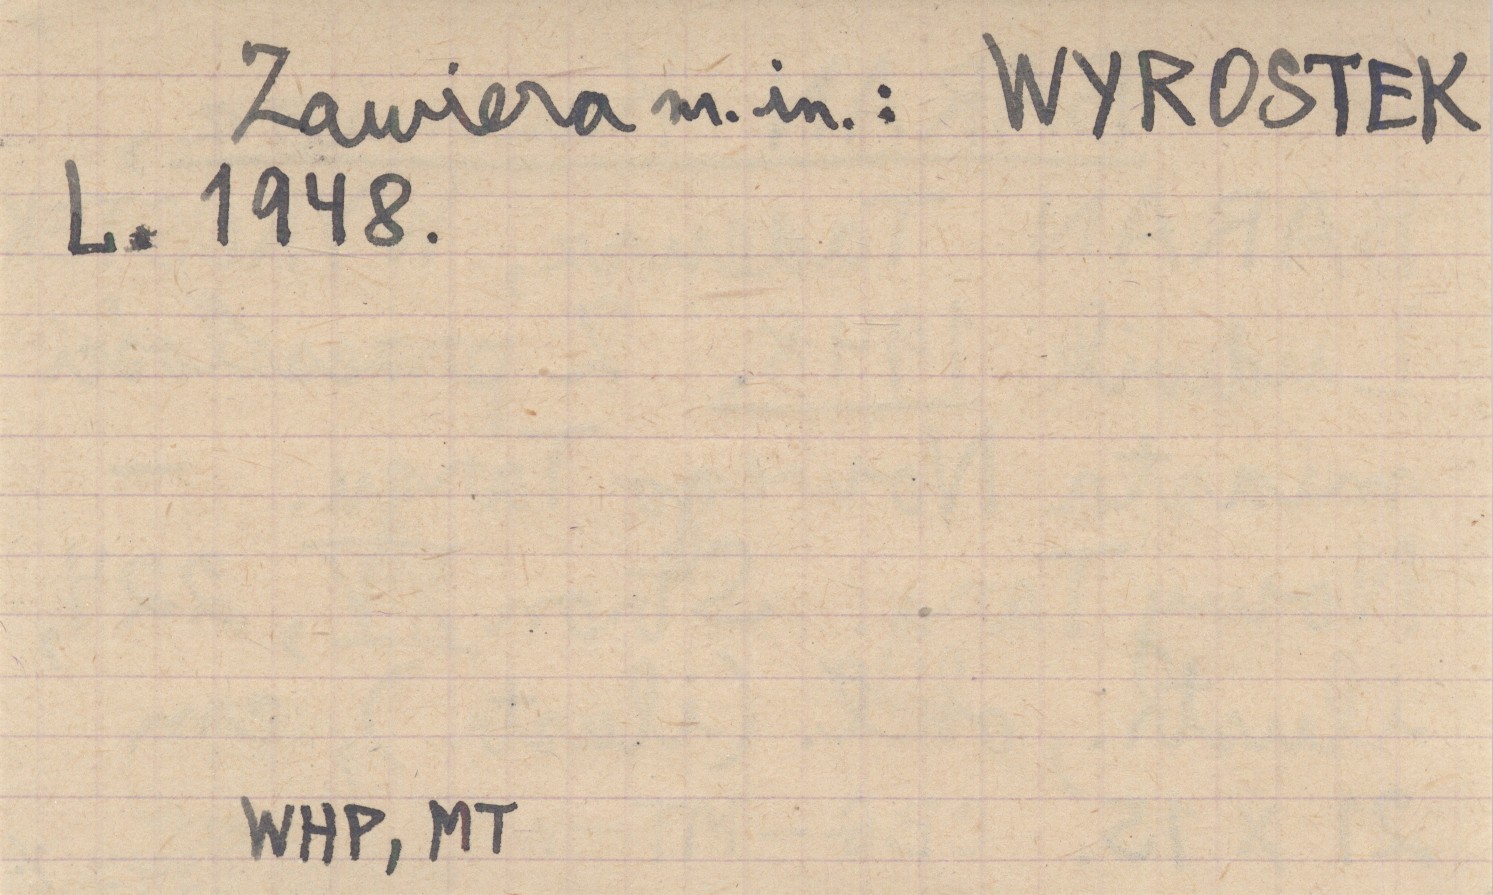 Zawiera m.in.: WYROSTEK
L. 1948.
WHP, MT